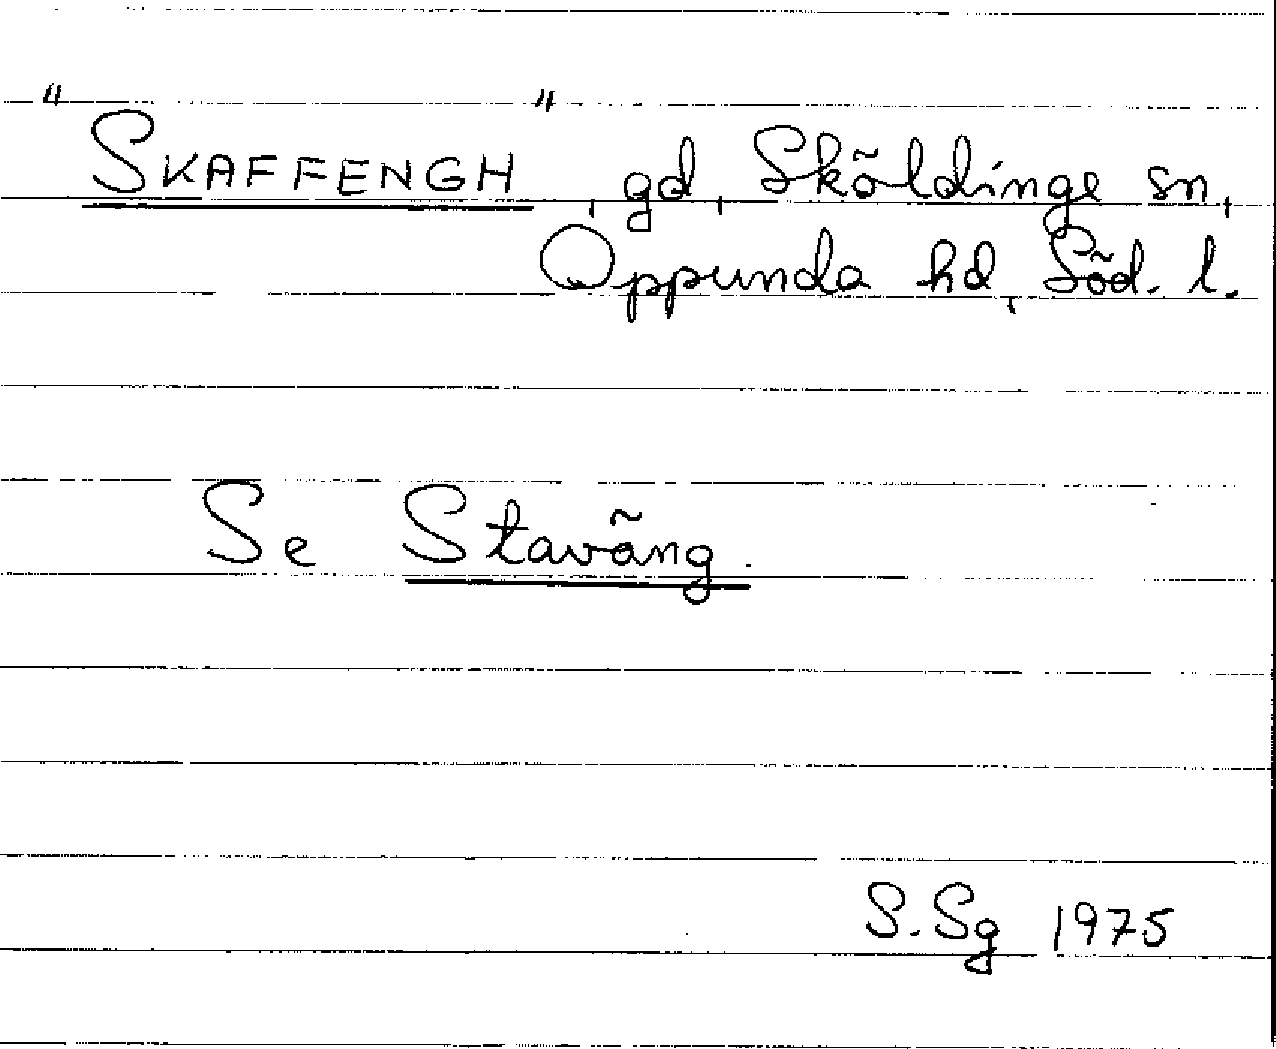 "SKAFFENGH", gd, Sköldinge sn,
Oppunda hd, Söd. l.
Se Staväng.
S.Sg 1975